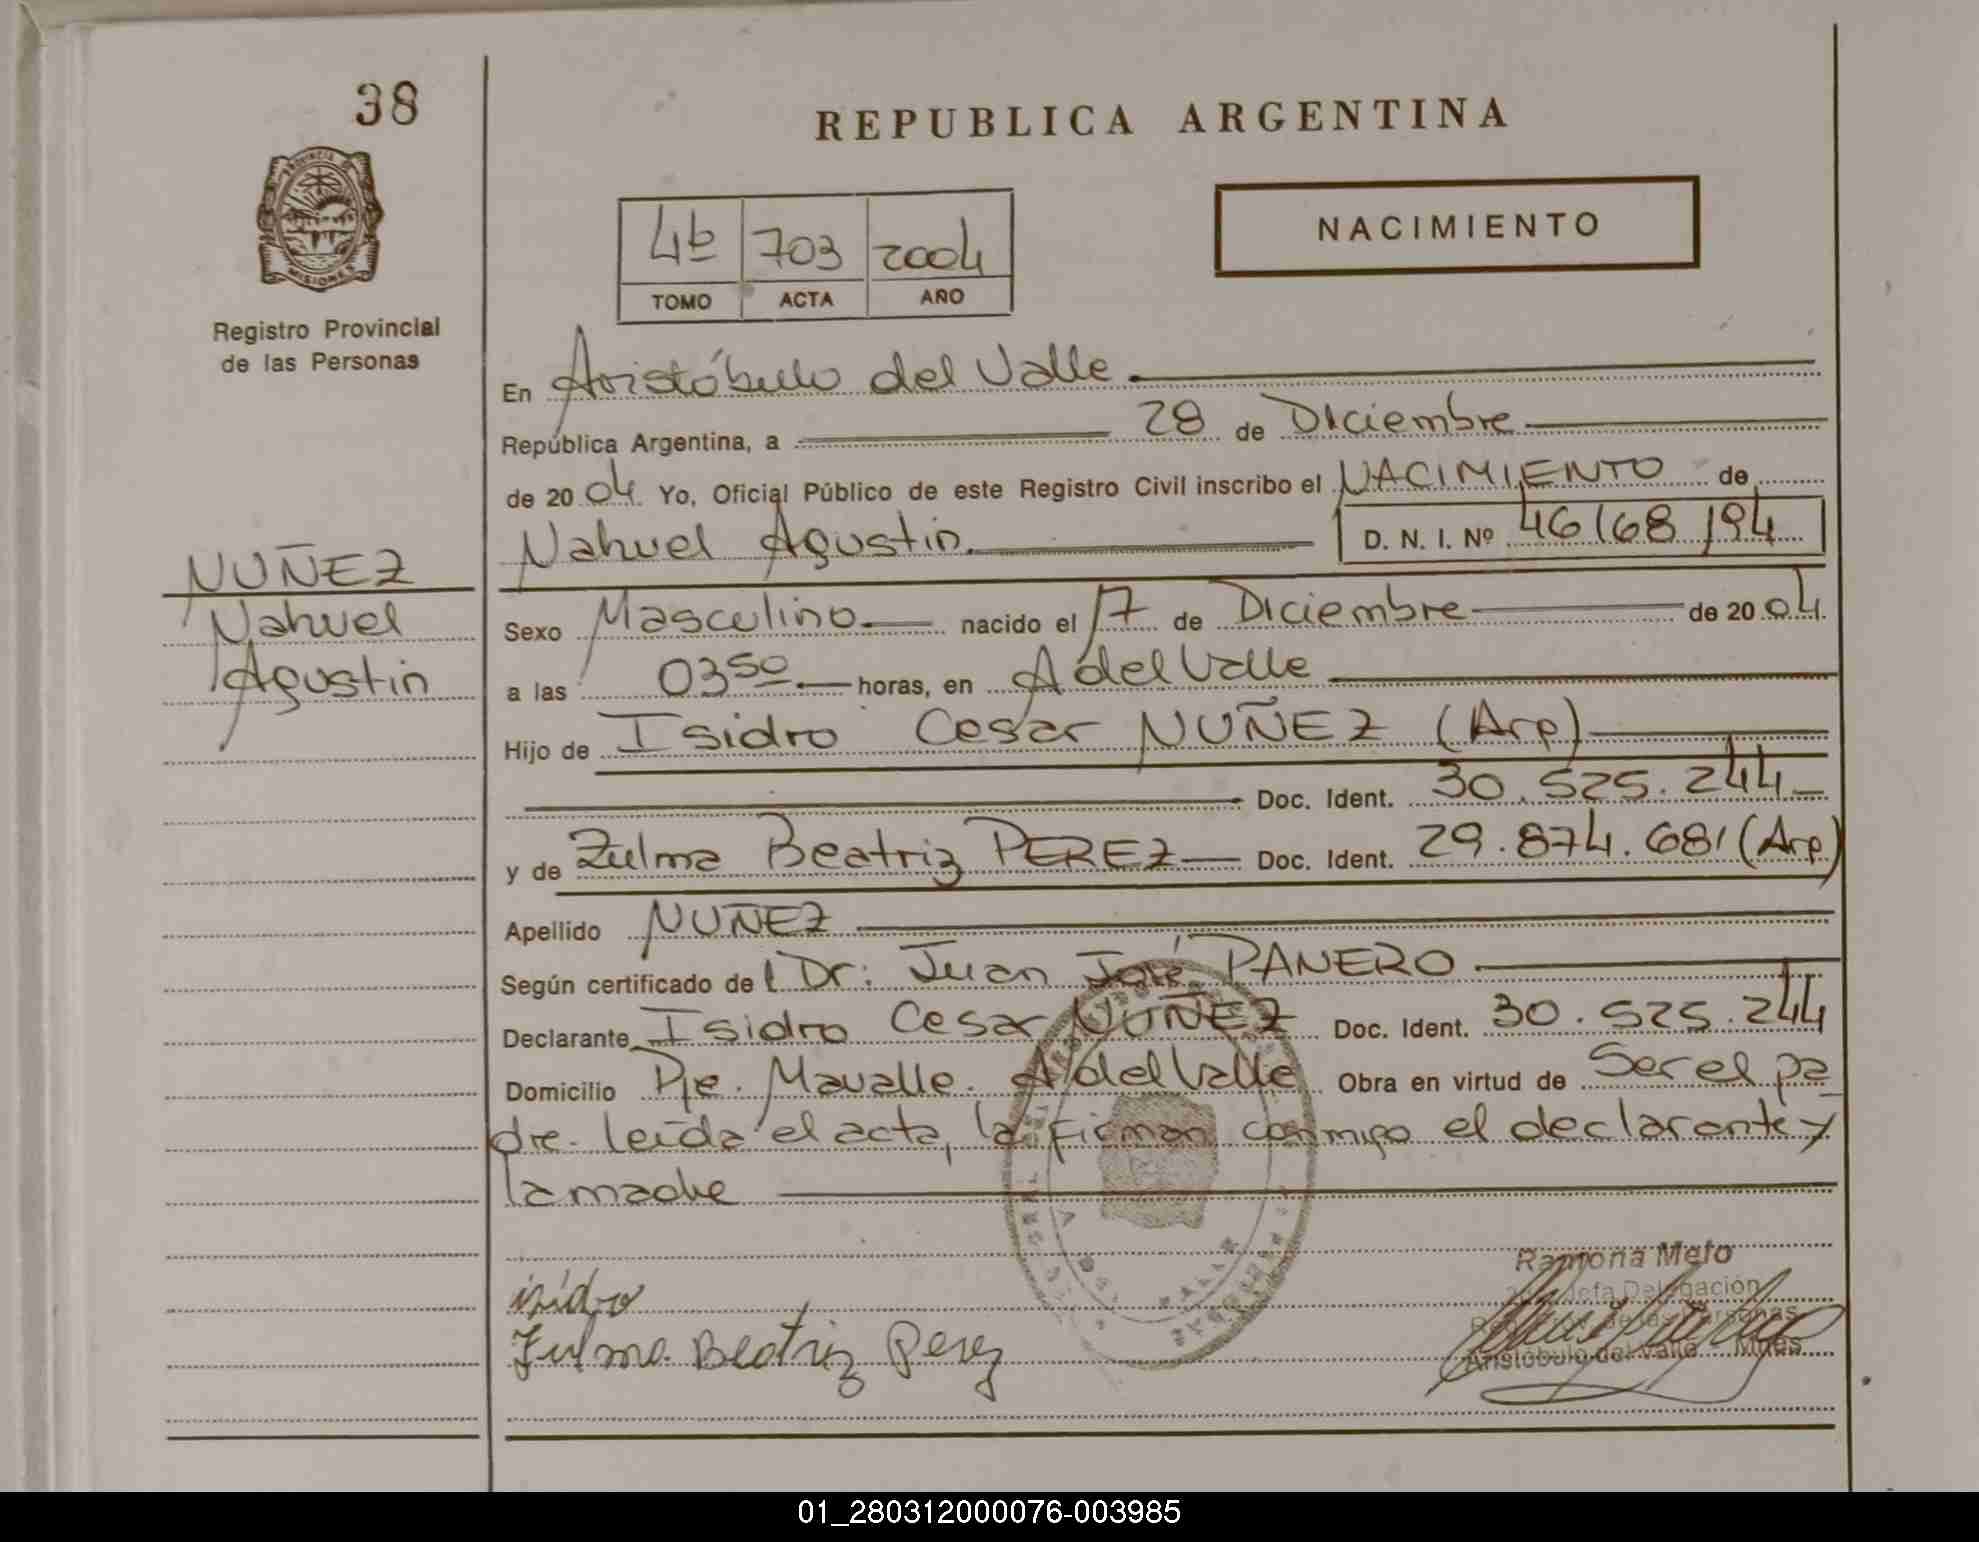 38
REPUBLICA ARGENTINA
PROVINCIA DE
MISIONES
Registro Provincial
de las Personas
4b 703 2004
TOMO ACTA AÑO
NACIMIENTO
En Aristóbulo del Valle
República Argentina, a 28 de Diciembre
de 2004 Yo, Oficial Público de este Registro Civil inscribo el NACIMIENTO de
Nahuel Agustin D. N. I. Nº 46168194
NUÑEZ
Nahuel
Agustin
Sexo Masculino nacido el 17 de Diciembre de 2004
a las 03 50 horas, en A del Valle
Hijo de Isidro Cesar NUÑEZ (Arg)
Doc. Ident. 30.525.244
y de Zulma Beatriz PEREZ Doc. Ident. 29.874.681 (Arg)
Apellido NUÑEZ
Según certificado de l Dr: Juan José PANERO
Declarante Isidro Cesar NUÑEZ Doc. Ident. 30.525.244
Domicilio Pje. Mavalle. A del Valle Obra en virtud de Ser el pa
dre. leída el acta, la firman conmigo el declarante y
la madre
isidro
Zulma Beatriz Perez
Ramona Melo
Jefa Delegación
de las Personas
Aristóbulo del Valle - Mnes
01_280312000076-003985